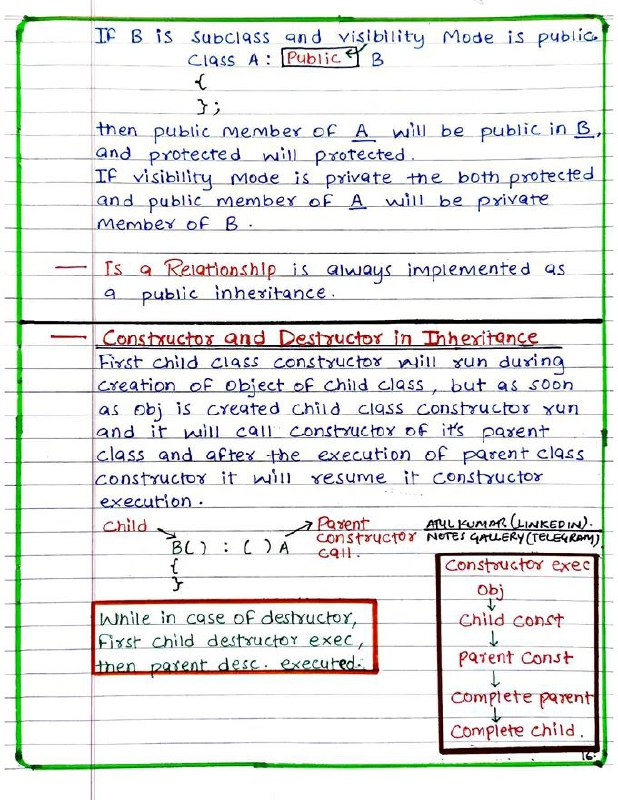 If B is subclass and visibility Mode is public.
Class A : Public B
{
};
then public member of A will be public in B,
and protected will protected.
If visibility Mode is private the both protected
and public member of A will be private
member of B.
— Is a Relationship is always implemented as
a public inheritance.
— Constructor and Destructor in Inheritance
First child class constructor will run during
creation of object of child class, but as soon
as obj is created child class constructor run
and it will call constructor of it's parent
class and after the execution of parent class
constructor it will resume it constructor
execution.
Child
B() : ()A
{
}
Parent
constructor
call.
ATUL KUMAR (LINKEDIN).
NOTES GALLERY (TELEGRAM)
While in case of destructor,
First child destructor exec,
then parent desc. executed.
Constructor exec
Obj
↓
Child const
↓
Parent Const
↓
Complete parent
↓
Complete child.
16.